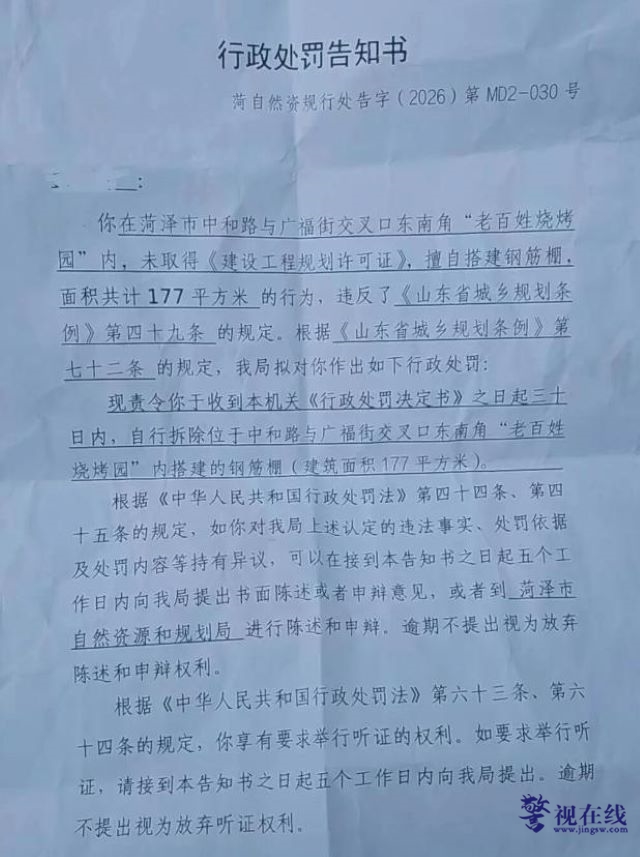 行政处罚告知书
菏自然资规行处告字（2026）第 MD2-030 号
：
你在菏泽市中和路与广福街交叉口东南角“老百姓烧烤
园”内，未取得《建设工程规划许可证》，擅自搭建钢筋棚，
面积共计 177 平方米 的行为，违反了《山东省城乡规划条
例》第四十九条 的规定。根据《山东省城乡规划条例》第
七十二条 的规定，我局拟对你作出如下行政处罚：
现责令你于收到本机关《行政处罚决定书》之日起三十
日内，自行拆除位于中和路与广福街交叉口东南角“老百姓
烧烤园”内搭建的钢筋棚（建筑面积177平方米）。
根据《中华人民共和国行政处罚法》第四十四条、第四
十五条的规定，如你对我局上述认定的违法事实、处罚依据
及处罚内容等持有异议，可以在接到本告知书之日起五个工
作日内向我局提出书面陈述或者申辩意见，或者到 菏泽市
自然资源和规划局 进行陈述和申辩。逾期不提出视为放弃
陈述和申辩权利。
根据《中华人民共和国行政处罚法》第六十三条、第六
十四条的规定，你享有要求举行听证的权利。如要求举行听
证，请接到本告知书之日起五个工作日内向我局提出。逾期
不提出视为放弃听证权利。
警视在线
www.jingsw.com